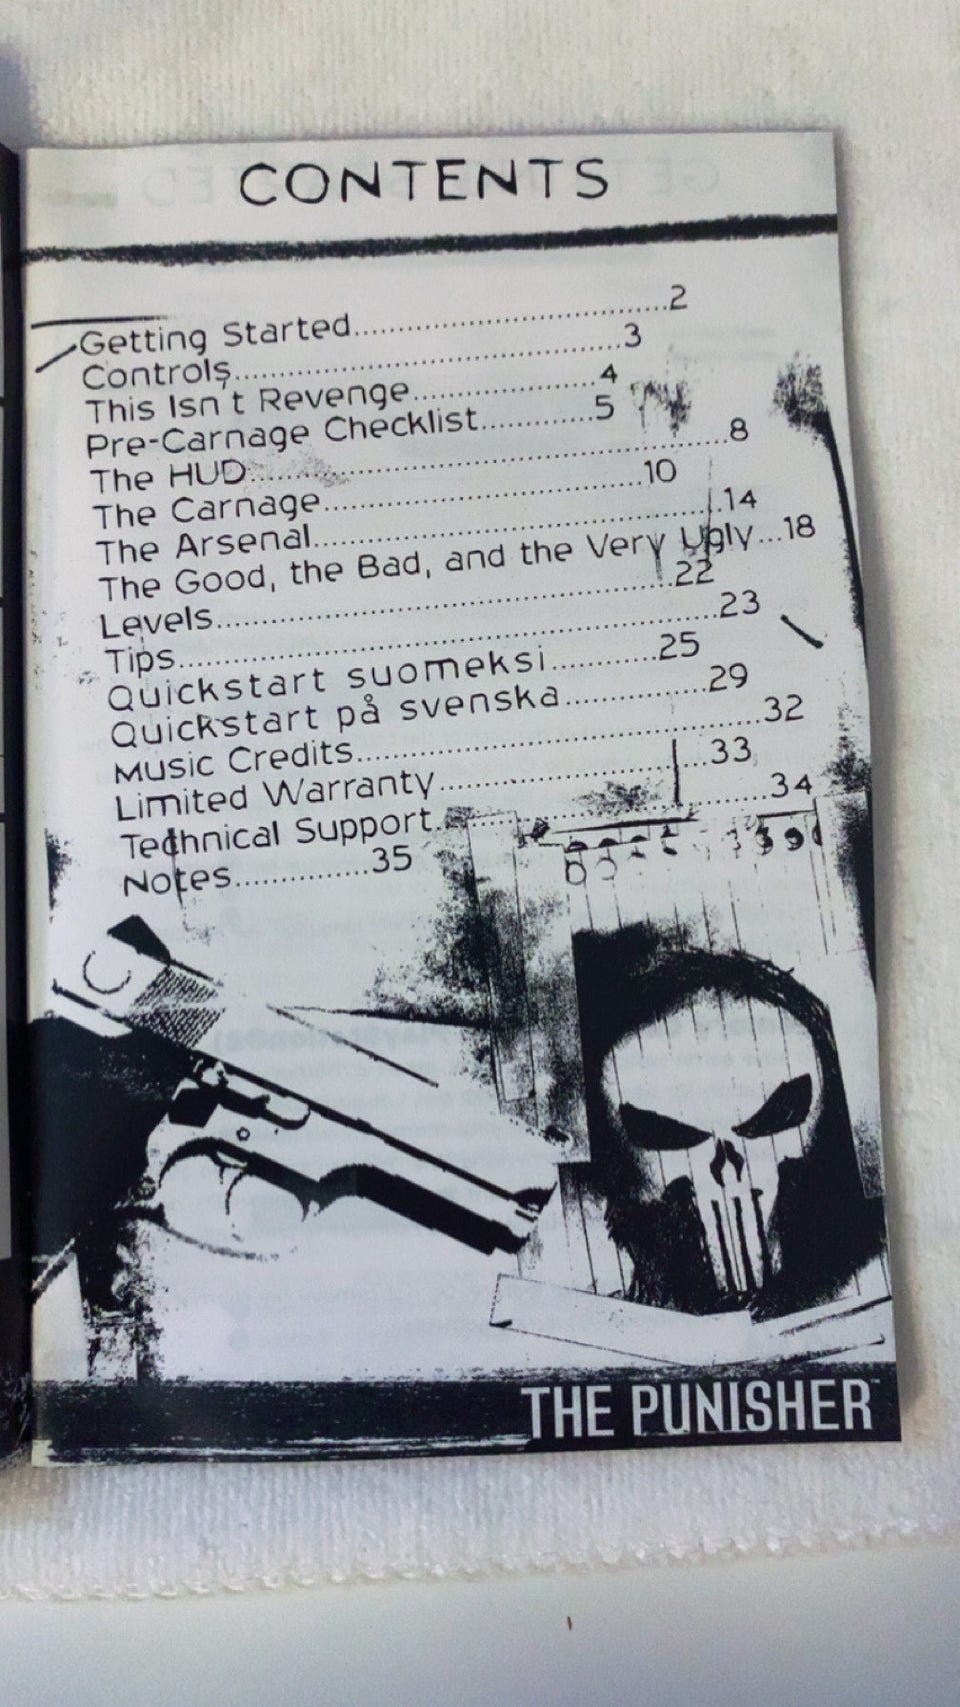 CONTENTS
Getting Started..........2
Controls..........3
This Isn't Revenge..........4
Pre-Carnage Checklist..........5
The HUD..........8
The Carnage..........10
The Arsenal..........14
The Good, the Bad, and the Very Ugly...18
Levels..........22
Tips..........23
Quickstart suomeksi..........25
Quickstart på svenska..........29
Music Credits..........32
Limited Warranty..........33
Technical Support..........34
Notes..........35
THE PUNISHER™